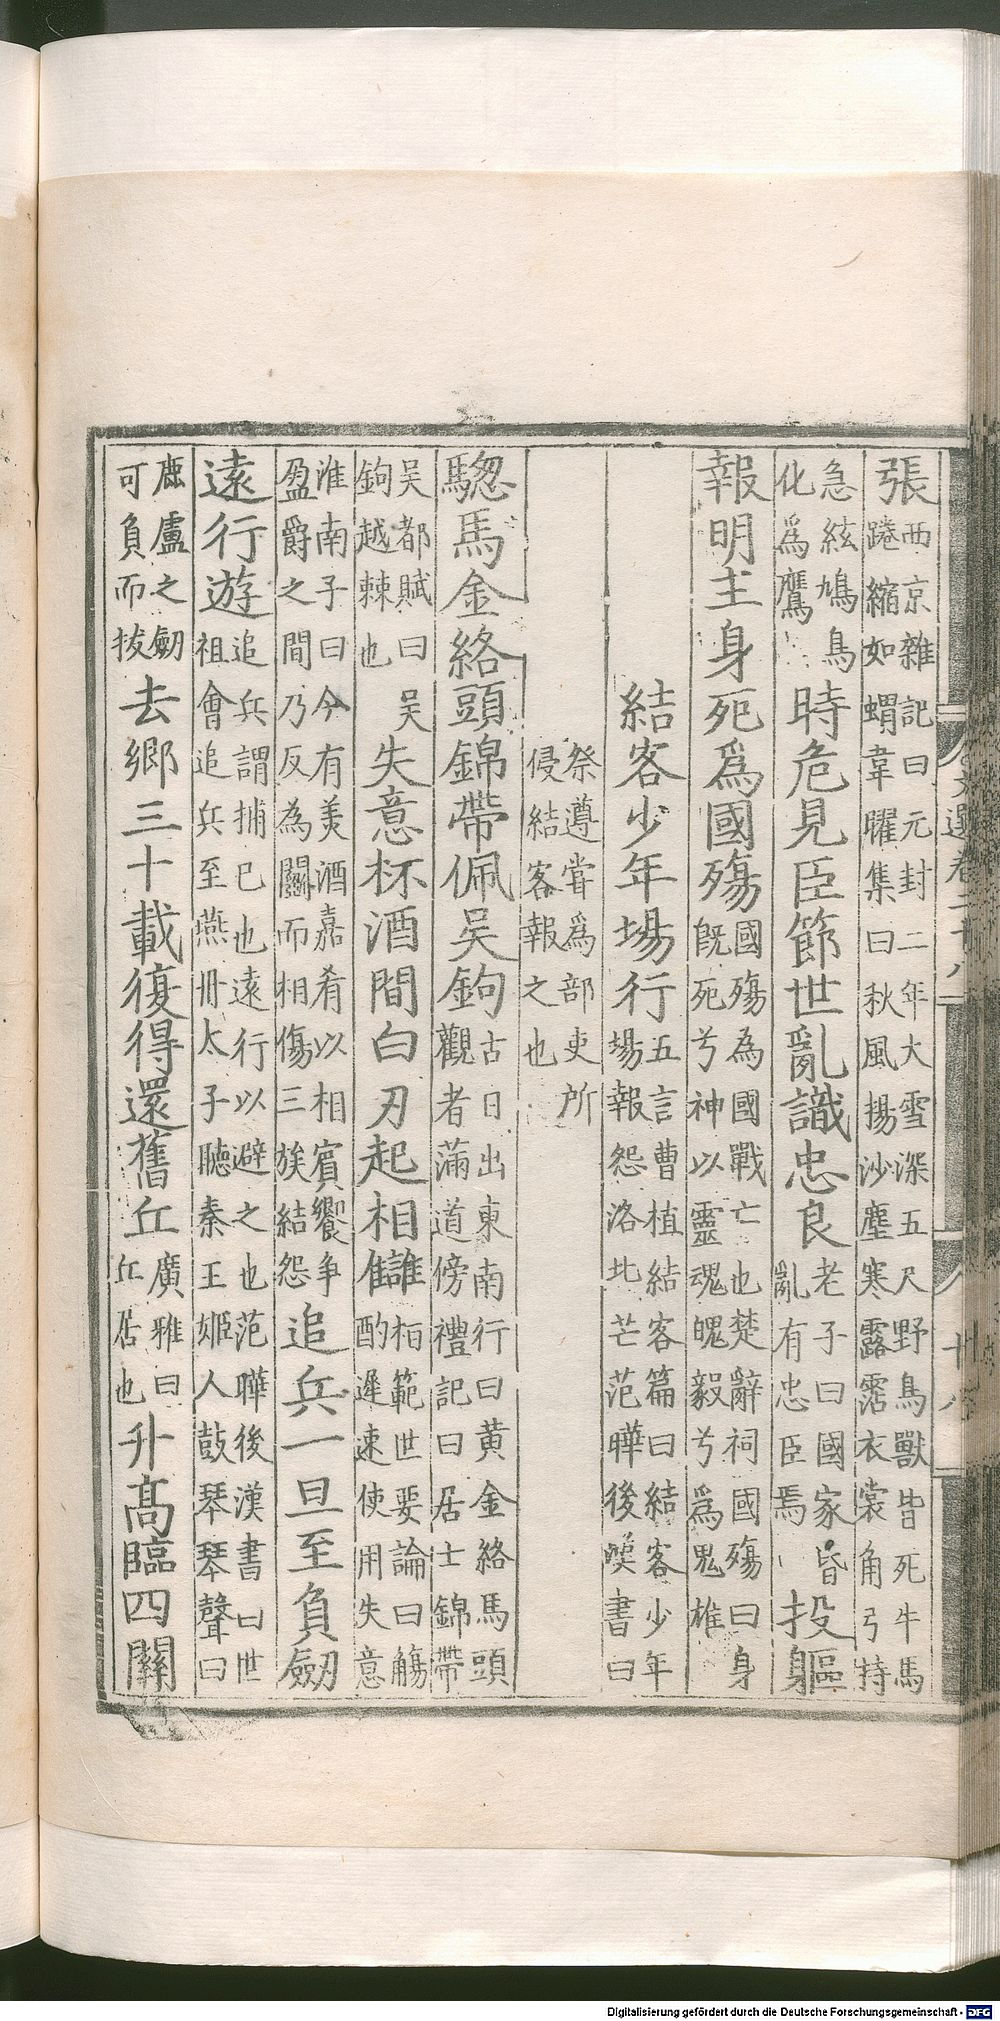 文選卷二十八
十八
張西京雜記曰元封二年大雪深五尺野鳥獸皆死牛馬踡縮如蝟韋曜集曰秋風揚沙塵寒露霑衣裳角弓持
急絃鳩鳥化爲鷹時危見臣節世亂識忠良老子曰國家昏亂有忠臣焉投軀
報明主身死爲國殤國殤為國戰亡也楚辭祠國殤曰身既死兮神以靈魂魄毅兮爲鬼椎
結客少年場行五言曹植結客篇曰結客少年場報怨洛北芒范曄後漢書曰
祭遵嘗爲部吏所侵結客報之也
驄馬金絡頭錦帶佩吳鉤古日出東南行曰黃金絡馬頭觀者滿道傍禮記曰居士錦帶
吳都賦曰吳鉤越棘也失意杯酒間白刃起相讎桓範世要論曰觴酌遲速使用失意
淮南子曰今有美酒嘉肴以相賓饗爭盈爵之間乃反為鬭而相傷三族結怨追兵一旦至負劒
遠行遊追兵謂捕已也遠行以避之也范曄後漢書曰世祖會追兵至燕丹太子聽秦王姬人鼓琴琴聲曰
鹿盧之劒可負而拔去鄉三十載復得還舊丘廣雅曰丘居也升髙臨四關
Digitalisierung gefördert durch die Deutsche Forschungsgemeinschaft - DFG